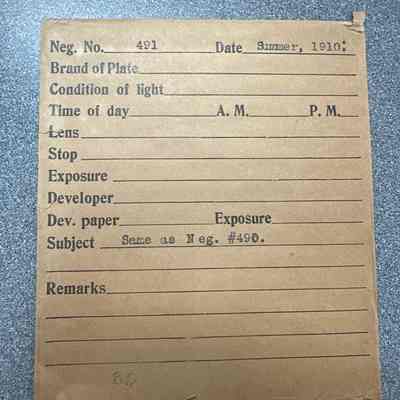 Neg. No. 491 Date Summer, 1910.
Brand of Plate
Condition of light
Time of day A. M. P. M.
Lens
Stop
Exposure
Developer
Dev. paper Exposure
Subject Same as Neg. #490.
Remarks